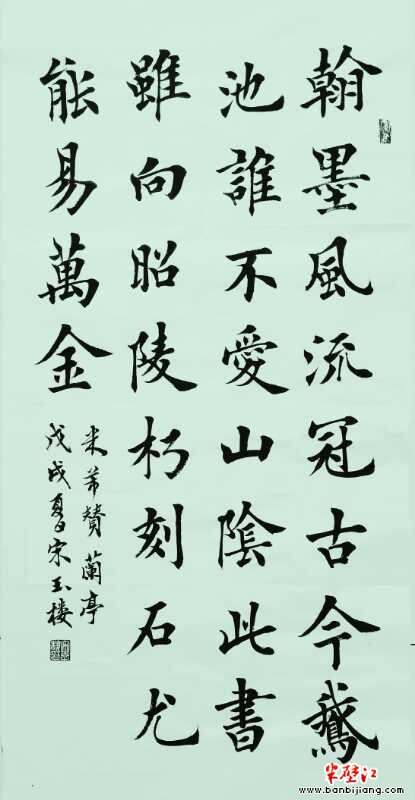 翰墨風流冠古今鵞
池誰不愛山陰此書
雖向昭陵朽刻石尤
能易萬金
米芾贊蘭亭
戊戌夏宋玉楼
半壁江
www.banbijiang.com